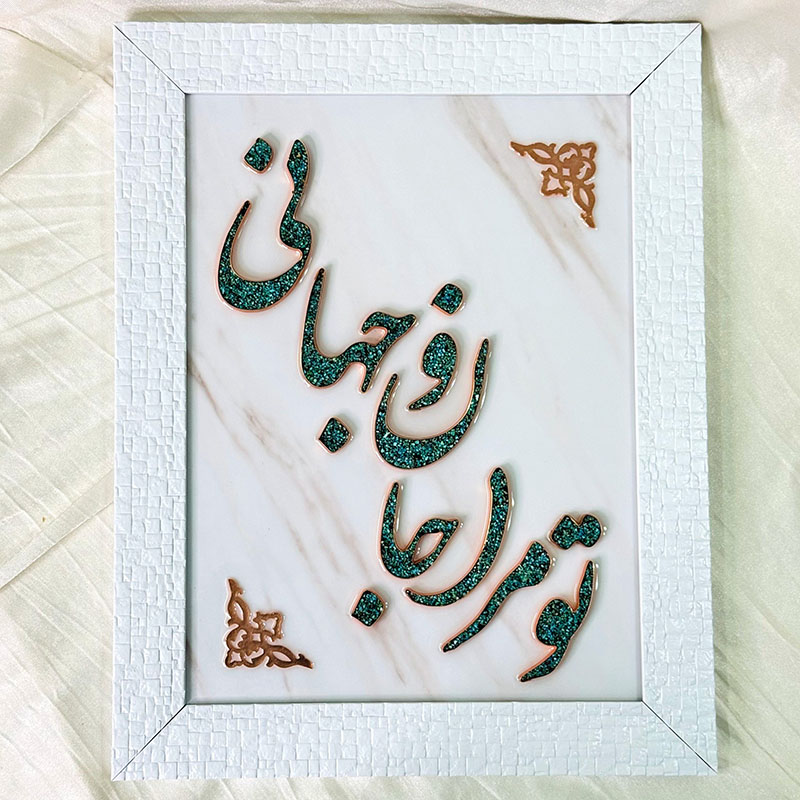 تو مرا جان و جهانی